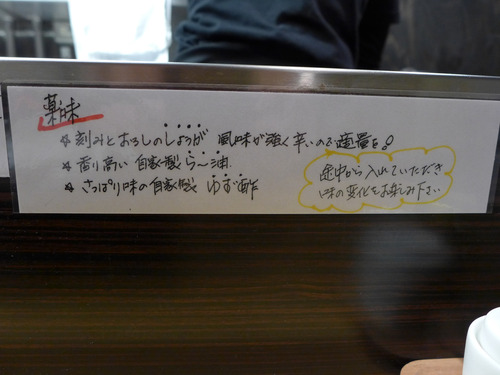 薬味
☆ 刻みとおろしのしょうが 風味が強く辛いので適量を!
☆ 香り高い 自家製 らー油
☆ さっぱり味の自家製 ゆず酢
途中から入れていただき
味の変化をお楽しみ下さい